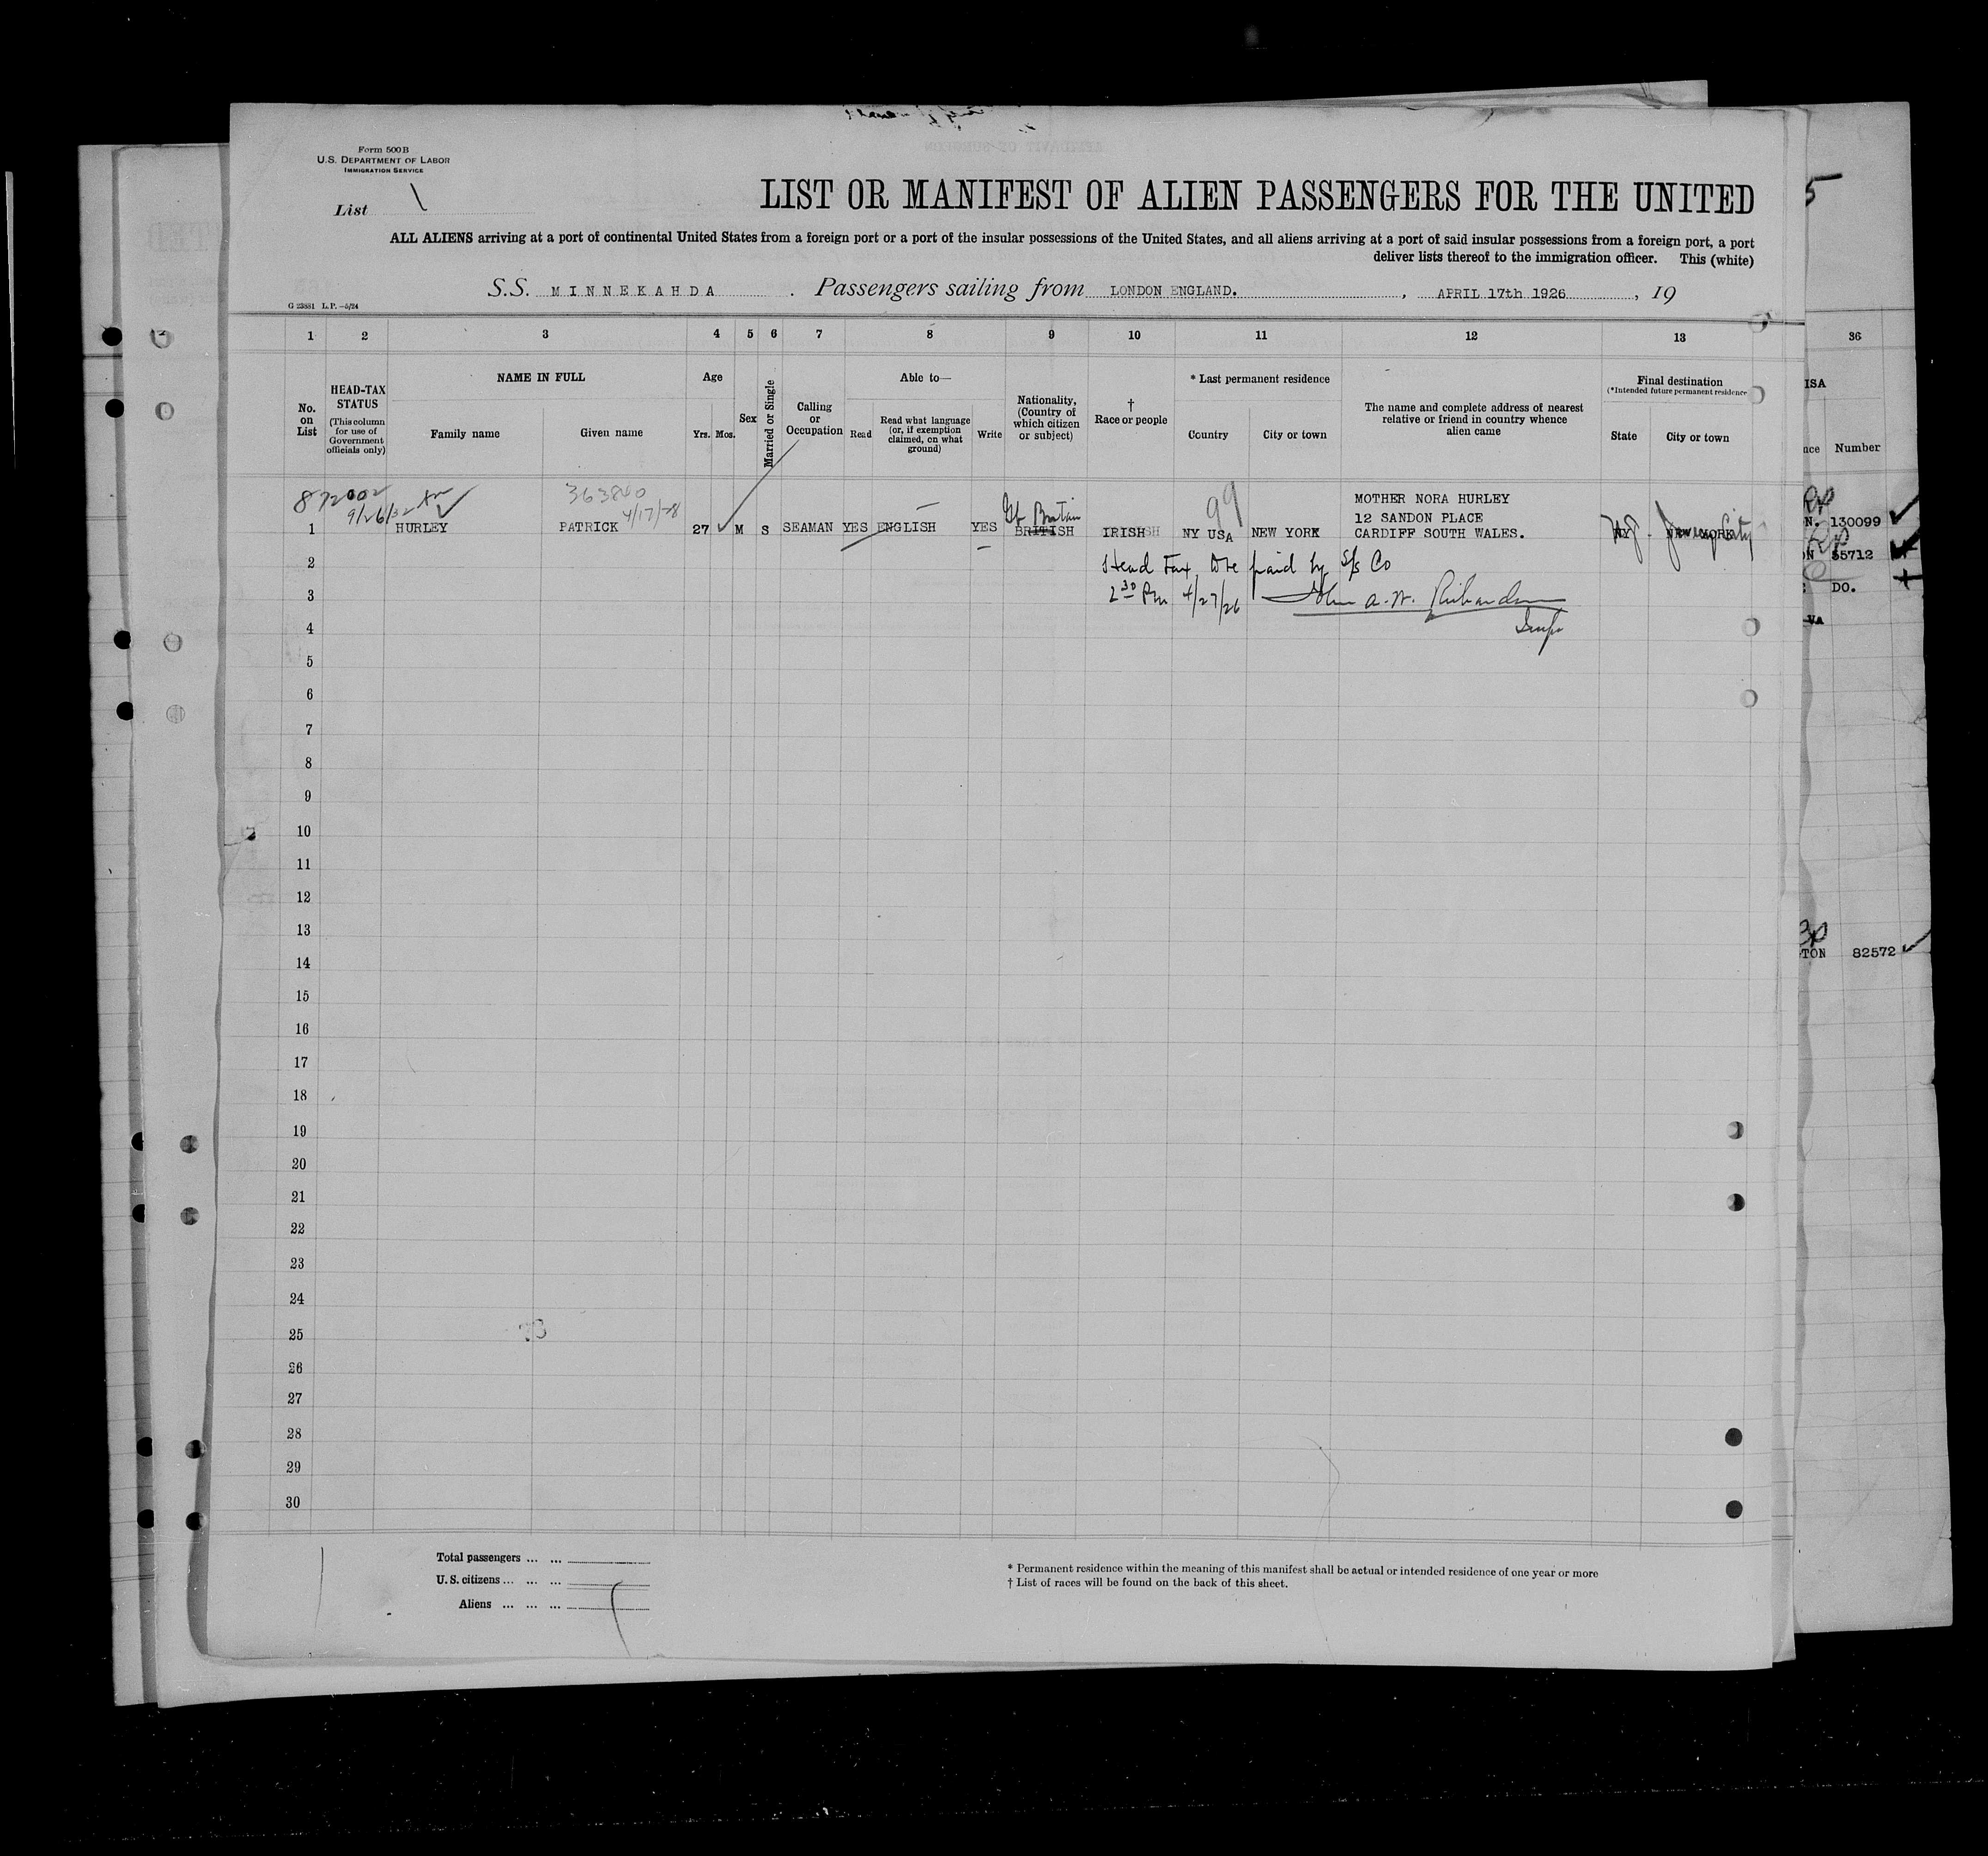 Form 500 B
U.S. DEPARTMENT OF LABOR
IMMIGRATION SERVICE
List 1
LIST OR MANIFEST OF ALIEN PASSENGERS FOR THE UNITED
ALL ALIENS arriving at a port of continental United States from a foreign port or a port of the insular possessions of the United States, and all aliens arriving at a port of said insular possessions from a foreign port, a port
deliver lists thereof to the immigration officer. This (white)
S.S. MINNEKAHDA . Passengers sailing from LONDON ENGLAND. , APRIL 17th 1926 , 19
G 23881 L.P.—5/24
1 2 3 4 5 6 7 8 9 10 11 12 13 36
No. on List
HEAD-TAX STATUS
(This column for use of Government officials only)
NAME IN FULL
Family name Given name
Age
Yrs. Mos.
Sex
Married or Single
Calling or Occupation
Able to—
Read
Read what language (or, if exemption claimed, on what ground)
Write
Nationality, (Country of which citizen or subject)
† Race or people
* Last permanent residence
Country City or town
The name and complete address of nearest relative or friend in country whence alien came
Final destination
(*Intended future permanent residence
State City or town
ISA
nce Number
872002
9/26/32
363840
4/17/28
99
Gt Britain
MOTHER NORA HURLEY
12 SANDON PLACE
1 HURLEY PATRICK 27 M S SEAMAN YES ENGLISH YES BRITISH IRISH NY USA NEW YORK CARDIFF SOUTH WALES. NY NEW YORK
NJ. Jersey City
N. 130099
55712
DO.
VA
TON 82572
2 Head Tax to be paid by S/S Co
3 2 30 Pm 4/27/26 John A. W. Richardson
4 Insp
5
6
7
8
9
10
11
12
13
14
15
16
17
18
19
20
21
22
23
24
25
26
27
28
29
30
Total passengers ... ...
U.S. citizens ... ... ...
Aliens ... ... ...
* Permanent residence within the meaning of this manifest shall be actual or intended residence of one year or more
† List of races will be found on the back of this sheet.